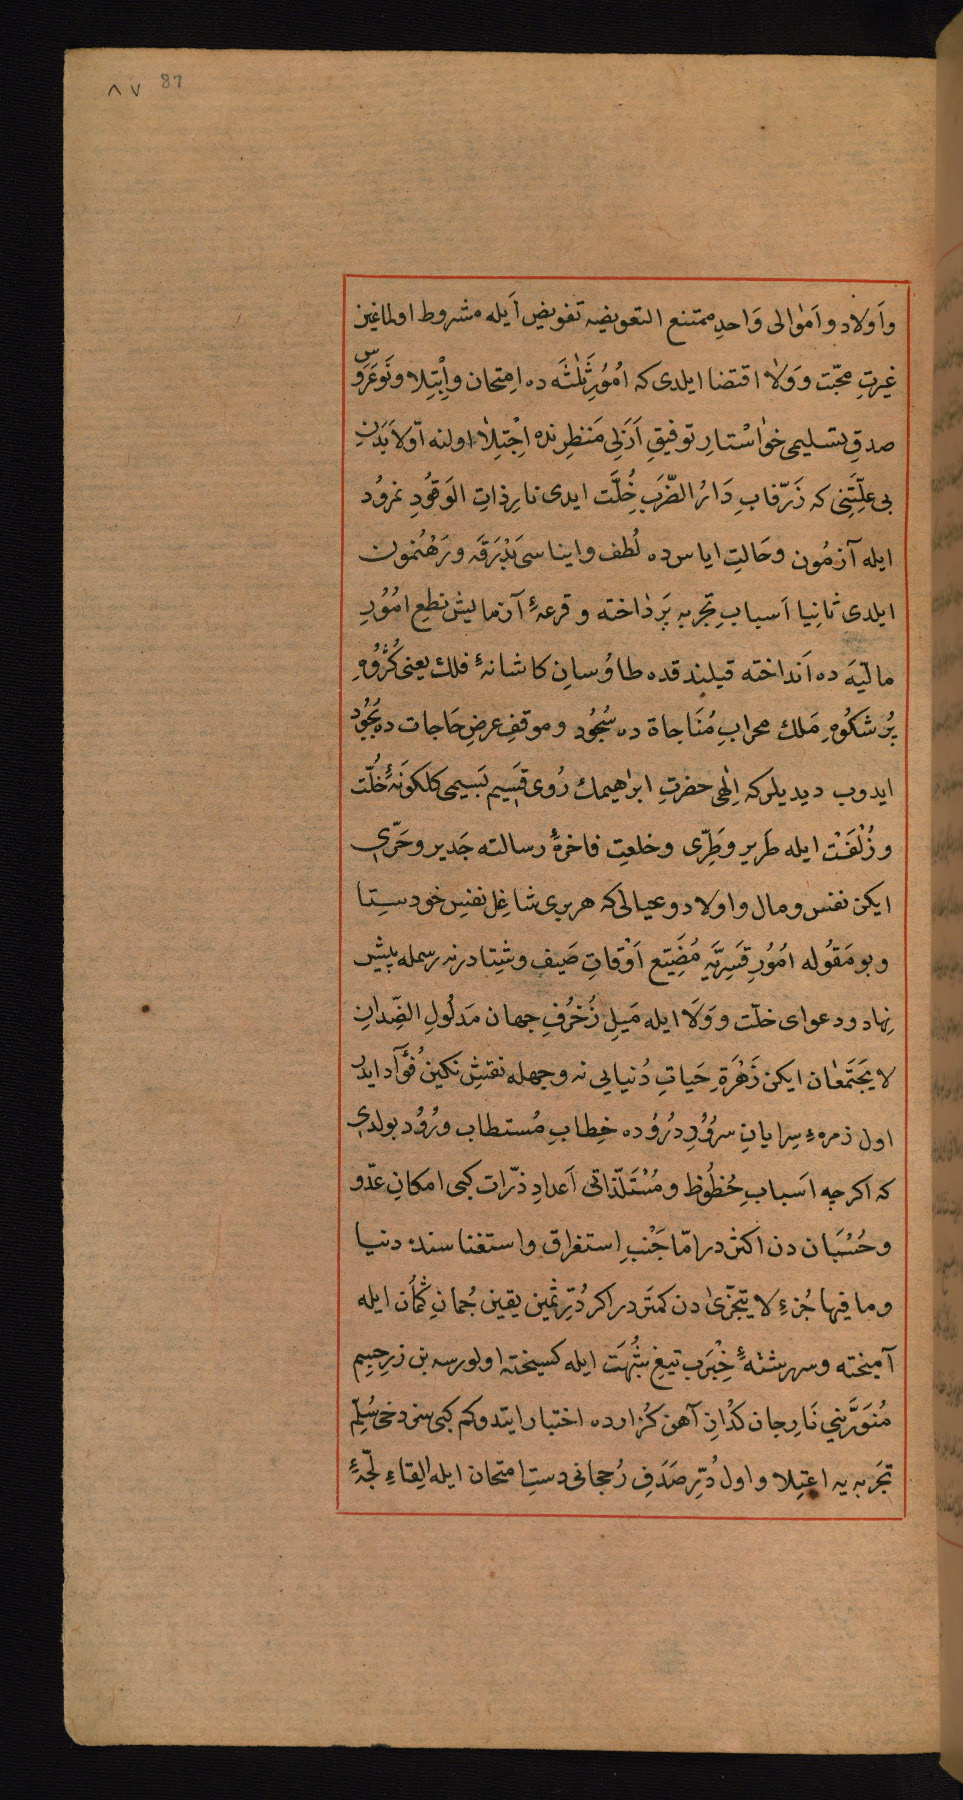 ٨٧ 87
وَاَولاد و اَموٰالی وَاحدِ ممتنع التعویضه تفویض اَیله مشروط اولماغین
غیرتِ محبّت و وَلا اقتضا ایلدی که اُمُورِ ثَلٰثَه ده اِمتحان و اِبْتِلا و نَوعَرَوس
صدقِ تسلیمی خوٰاسْتارِ توفیقِ اَزَلی مَنظرِنده اِجْتِلاٰ اولنه اوّلا بَدَنِ
بی علّتَنی که زَرّ قابِ دَارُ الضَّربَ خُِلَّت ایدی نارِ ذاتِ الوَقُودِ نمرُود
ایله آزمُون و حَالتِ ایاس ده لُطف و ایناسی بَدْرَقَه و رَهْنُمون
ایلدی ثانِیا اَسبابِ تجربه پَردٰاخته و قرعهٔ آزمایش نطعِ امُوُرِ
مالیّه ده اَنداخته قیلیندقده طاوُسانِ کاشانهٔ فلك یعنی کُرُوُهِ
پُر شکوُهِ مَلك محرابِ مُنَاجاة ده سُجُود و موقفِ عرضِ حَاجات ده نُجُود
ایدوب دیدیلر که اِلٰهی حضرتِ ابرٰاهیمك رُوی قَسِیم بَسیمی کلکونَهٔ خُلّت
و زُلْفَت ایله طَریر و طَرِّی و خلعتِ فاخرهٔ رسالته جَدیر و حَرّی
ایکن نفس و مال و اولاد و عیالی که هر بری شاغِل نفسِ خودستِا
و بو مَقُوله امُوُرِ قَسِرِیَّهِ مُضَِیّع اَوْقاتِ صَیف و شِتادر نه رسمله پیش
نِهاد و دعوای خلّت و وَلَا ایله مَیلِ زُخرُفِ جهان مَدلُولِ الضّدانِ
لا یَجتَمعٰان ایکن زَهْرَةِ حَیاتِ دُنیایی نه وجهله نقشِ نکینِ فُؤآد ایدر
اول زمرهٔ سِرایانِ سرُوُدِ درُوُده خِطابِ مُستطاب ورُوُد بولدی
که اکرچه اَسبابِ حُظُوظ و مُسْتَلَذّاتی اَعدادِ ذرّات کبی امکانِ عدّو
و حُسْبَان دن اکثر در امّا جَنْبِ استغراق و استغناسنده دنیا
و ما فیها جُزءِ لا یتجزّیٰ دن کمتَر در اکر دُرِّ ثمین یقین جُمانِ کُمٰان ایله
آمیخته و سررشتهٔ خِبْرَت تیغِ شُبْهَت ایله کسیخته اولورسه بن زرِ جسِیم
مُنَوَّرینی نَارِ جان کدُازِ آهن کزُارده اختبار ایتدوکم کبی سز دخی سُلّمِ
تجَربه یه اعتِلا و اول دُرِّ صَدَفِ رُحجانی دستِ امتحان ایله اِلقاءِ لُجّهٔ